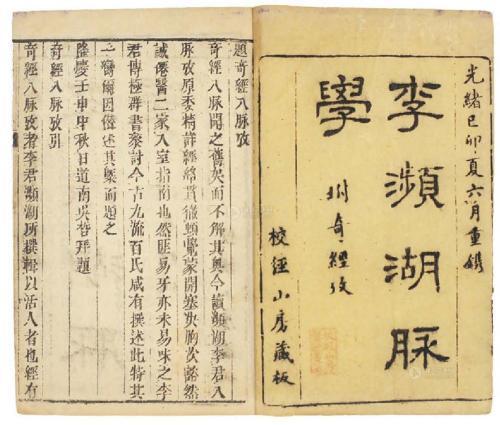 光緒己卯夏六月重鐫
李瀕湖脈
學
坿奇經攷
校經山房藏板
題奇經八脉攷
奇經八脉聞之舊矣而不解其奧今讀瀕湖李君八
脉攷原委精詳經絡貫徹頓覺蒙開塞決胸次豁然
誠僊醫二家入室指南也然匪易牙亦未易味之李
君博極群書參討今古九流百氏咸有撰述此特其
一臠爾因僭述其槩而題之
隆慶壬申中秋日道南吳哲拜題
奇經八脉攷引
奇經八脉攷者李君瀕湖所撰輯以活人者也經有